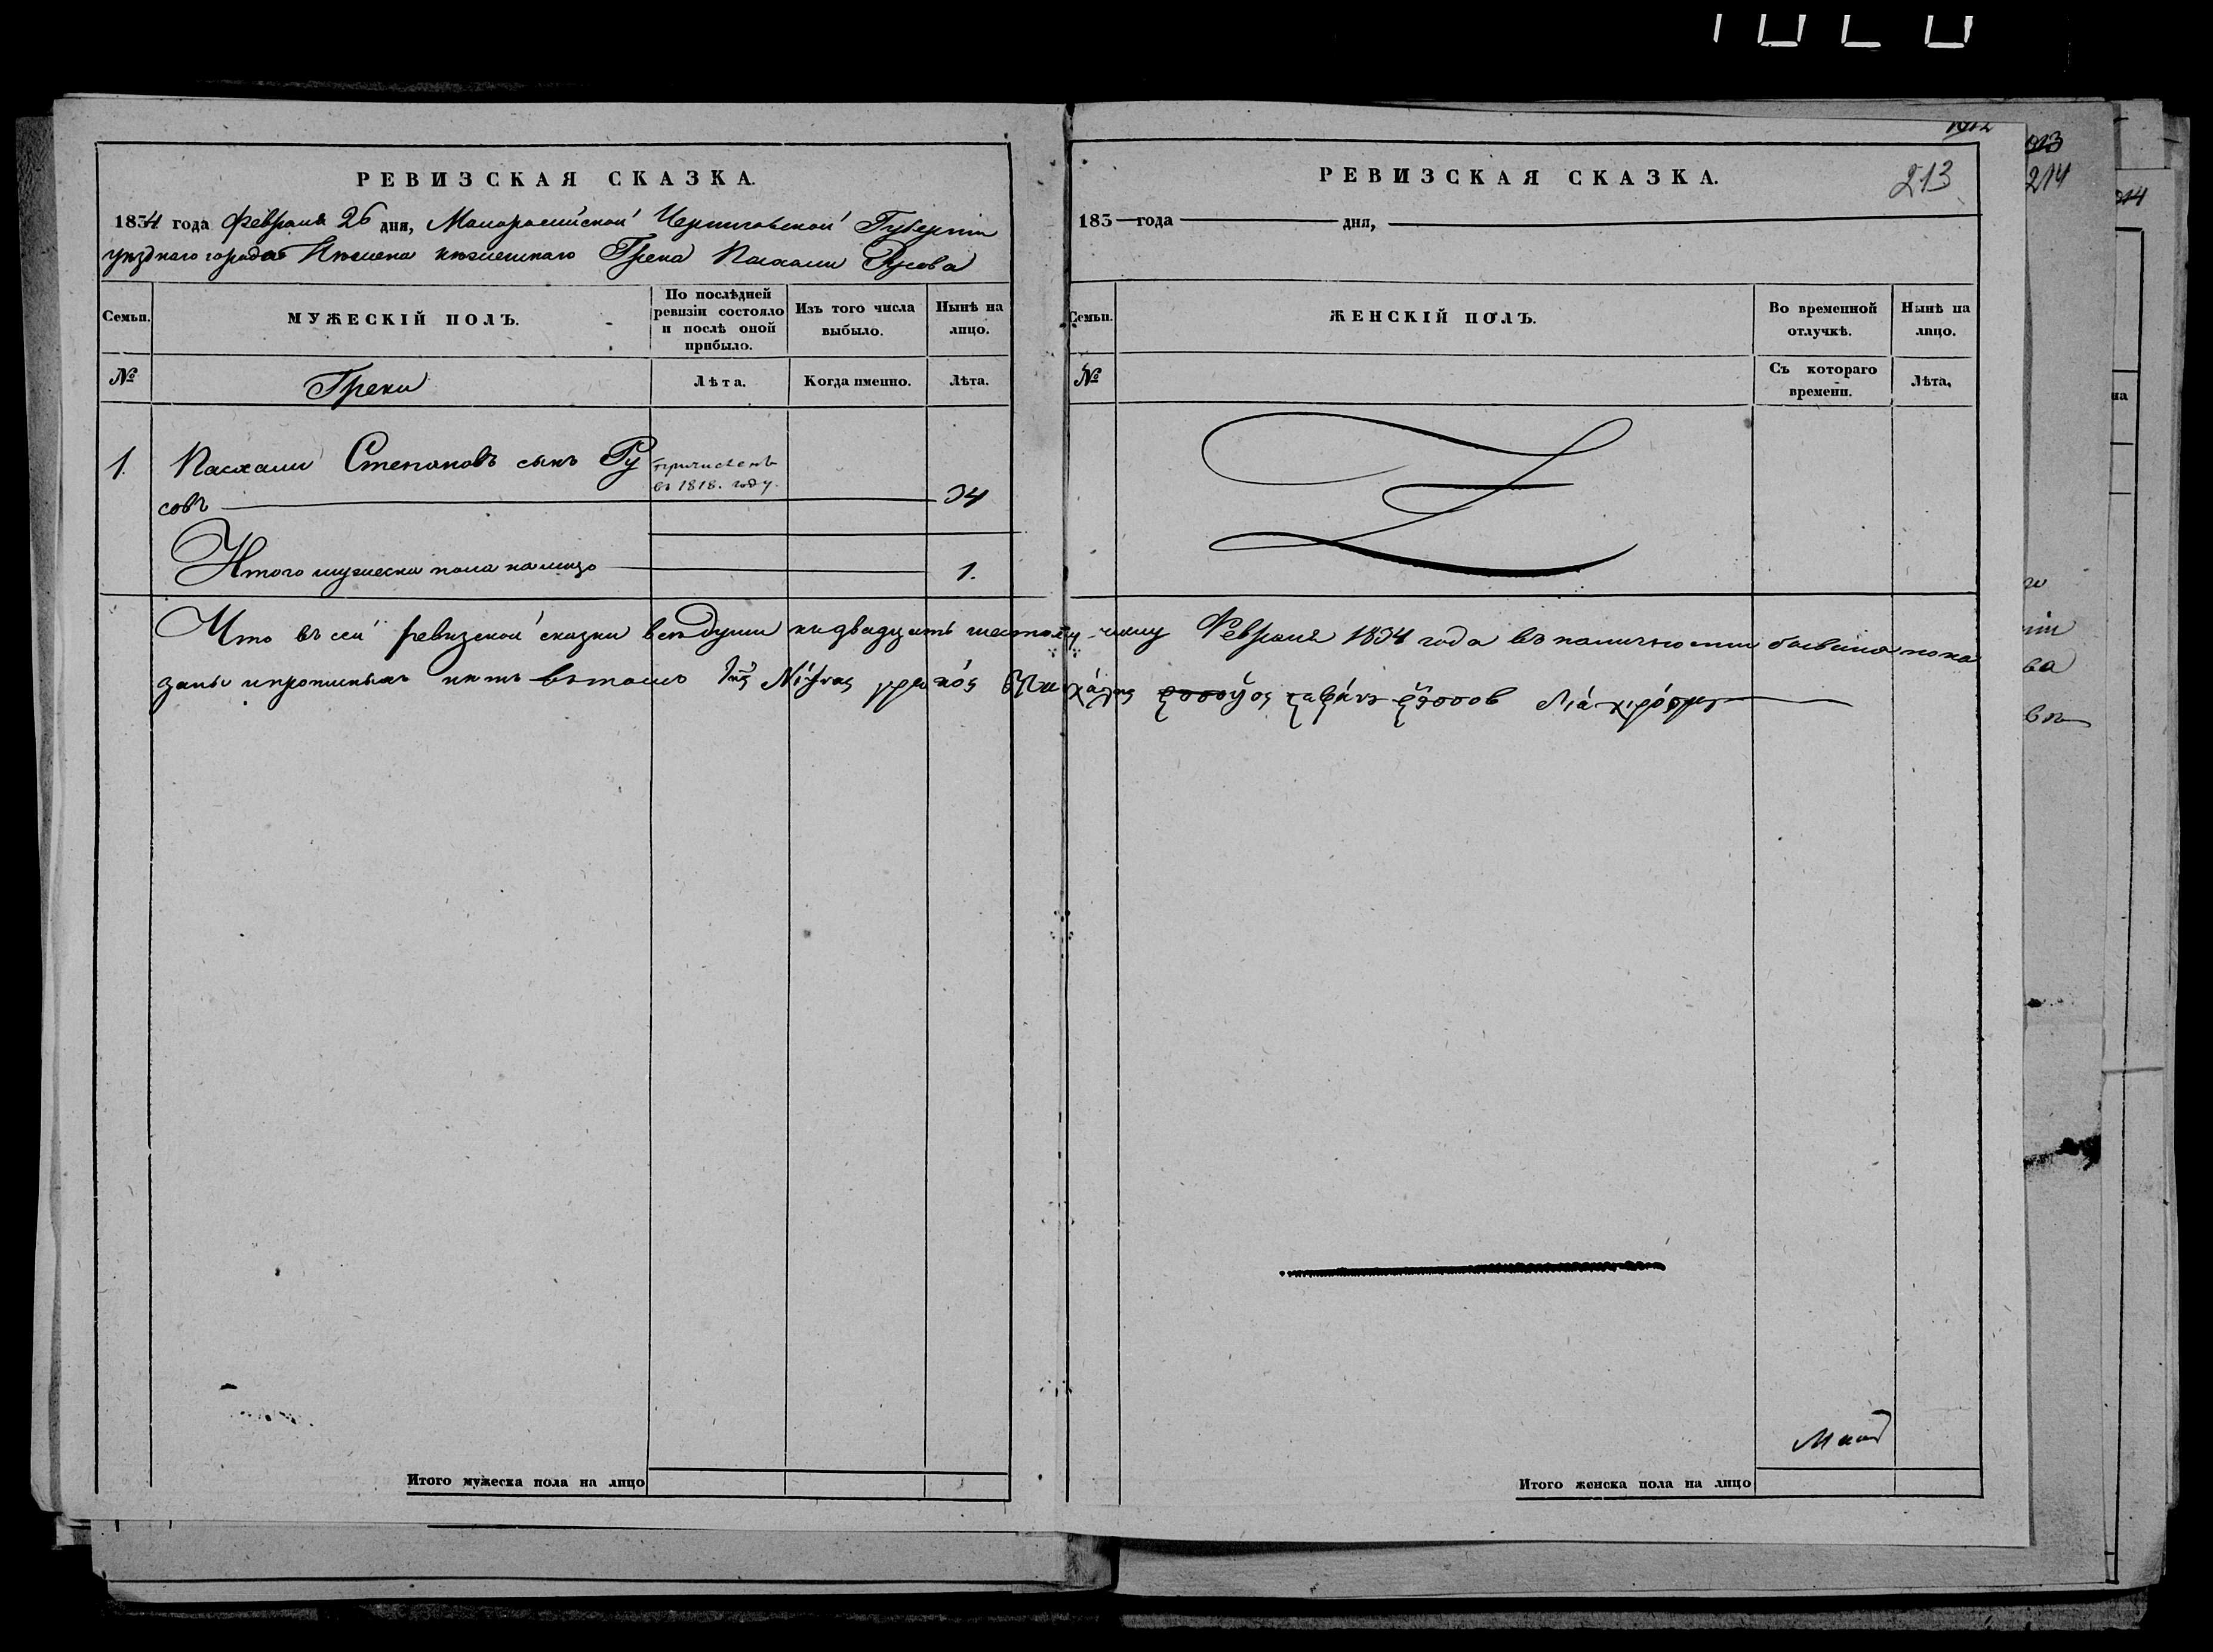 РЕВИЗСКАЯ СКАЗКА.
1834 года Февраля 26 дня, Малоросийской Черниговской Губернiи
уезднаго города Нежина нежинскаго Грека Пасхали Русова
Семьи.
МУЖЕСКІЙ ПОЛЪ.
По послѣдней ревизіи состояло и послѣ оной прибыло.
Изъ того числа выбыло.
Нынѣ на лицо.
№
Греки
Лѣта.
Когда именно.
Лѣта.
1. Пасхали Степановъ сынъ Ру
причисленъ
въ 1818. году.
совъ 34
Итого мужеска пола налицо 1.
Что въ сей ревизской сказки все души къ двадцать шестому числу Февраля 1834 года въ наличности бывшие пока
заны и прописныхъ нетъ въ томъ
Итого мужеска пола на лицо
213
РЕВИЗСКАЯ СКАЗКА.
183 года дня,
Семьи.
ЖЕНСКІЙ ПОЛЪ.
Во временной отлучкѣ.
Нынѣ на лицо.
№
Съ котораго времени.
Лѣта,
Итого женска пола на лицо
214